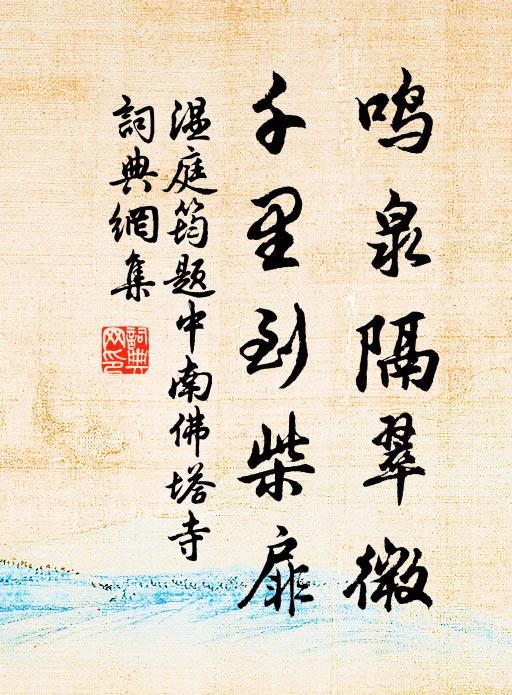 鸣泉隔翠微
千里到柴扉
温庭筠题中南佛塔寺
詞典網集
詞典网印